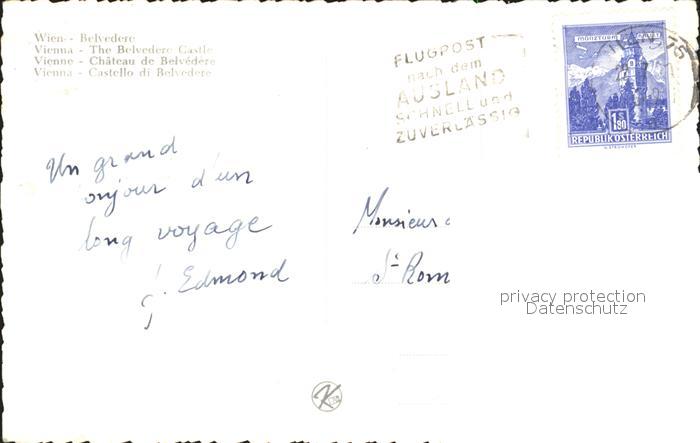 Wien - Belvedere
Vienna - The Belvedere Castle
Vienne - Château de Belvédère
Vienna - Castello di Belvedere
FLUGPOST
nach dem
AUSLAND
SCHNELL und
ZUVERLÄSSIG
MÜNZTURM
S
1.80
REPUBLIK ÖSTERREICH
Un grand
onjour d'un
long voyage
J. Edmond
Monsieur
St Rom
privacy protection
Datenschutz
K